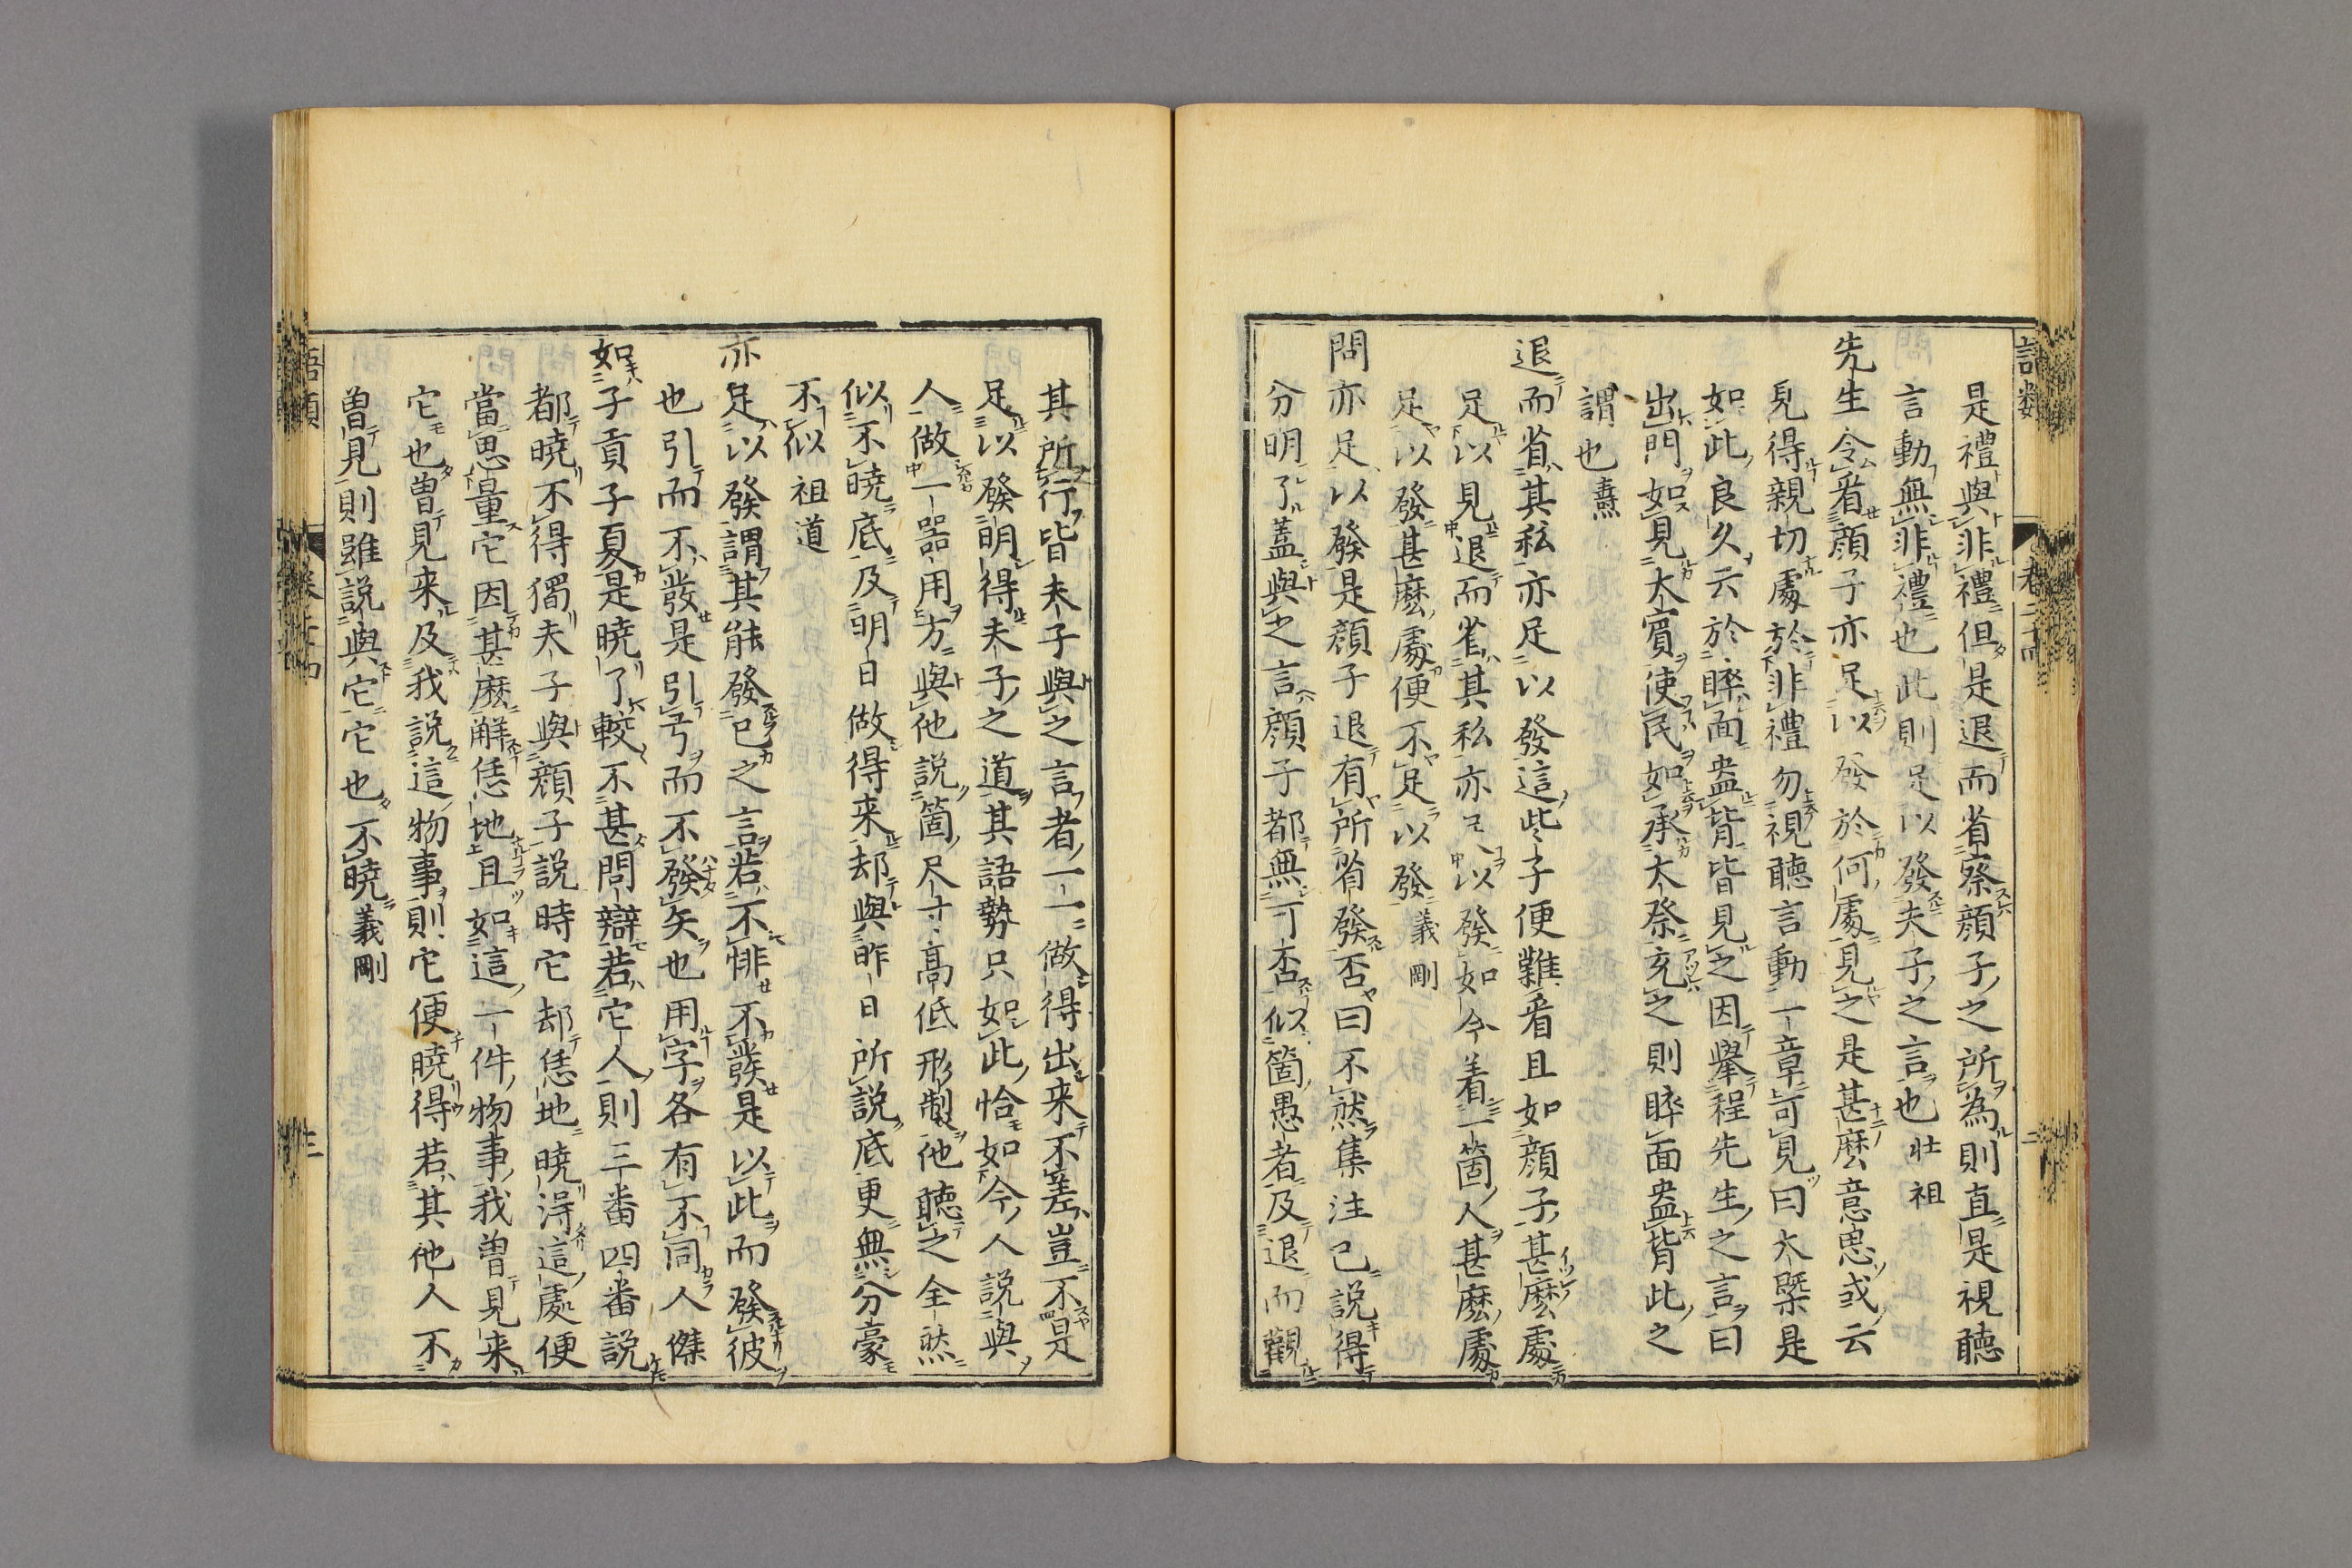 是禮與非禮但是退而省察顔子之所為則直是視聽
言動無非禮也此則足以發夫子之言也壮祖
先生令看顔子亦足以發於何處見之是甚麽意思或云
見得親切處於非禮勿視聽言動一章可見曰大槩是
如此良久云於睟面盎背皆見之因擧程先生之言曰
出門如見大賓使民如承大祭充之則睟面盎背此之
謂也燾
退而省其私亦足以發這些子便難看且如顔子甚麽處
足以見退而省其私亦足以發如今着一箇人甚麽處
足以發甚麽處便不足以發義剛
問亦足以發是顔子退有所省發否曰不然集注已説得
分明了蓋與之言顔子都無可否似箇愚者及退而觀
其所行皆夫子與之言者一一做得出来不差豈不是
足以發明得夫子之道其語勢只如此恰如今人説與
人做一器用方與他説箇尺寸高低形製他聽之全然
似不曉底及明日做得来却與昨日所説底更無分豪
不似祖道
亦足以發謂其能發己之言若不悱不發是以此而發彼
也引而不發是引弓而不發矢也用字各有不同人傑
如子貢子夏是曉了較不甚問辯若它人則三番四番説
都曉不得獨夫子與顔子説時它却恁地曉得這處便
當思量它因甚麽解恁地且如這一件物事我曽見来
它也曽見来及我説這物事則它便曉得若其他人不
曽見則雖説與它它也不曉義剛